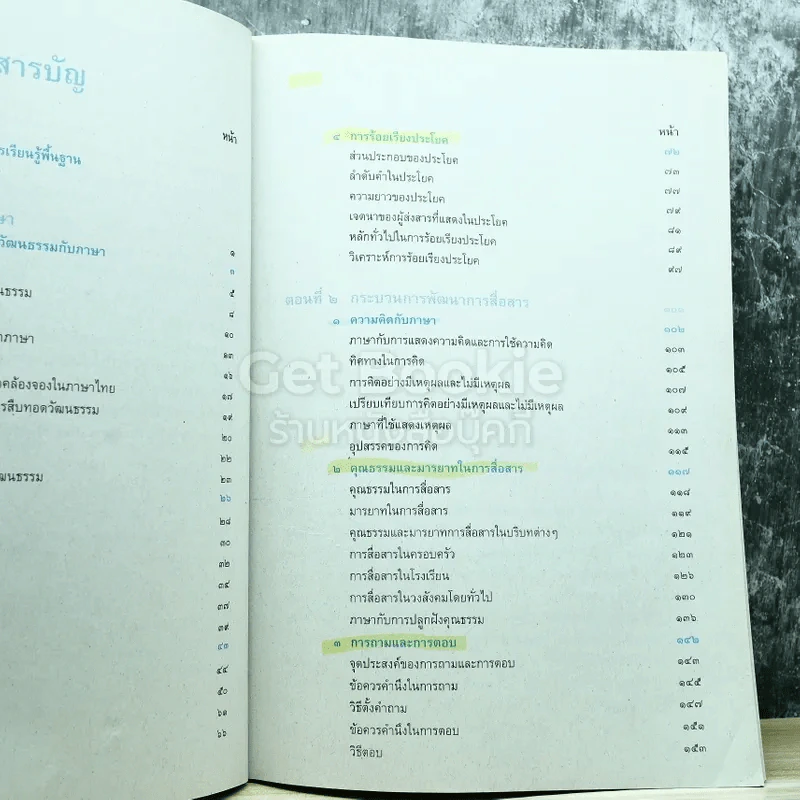 สารบัญ
หน้า
รเรียนรู้พื้นฐาน
ษา
วัฒนธรรมกับภาษา ๑
๑
นธรรม ๕
๘
ภาษา ๑๐
๑๓
๑๖
คล้องจองในภาษาไทย ๑๗
รสืบทอดวัฒนธรรม ๑๙
๒๐
๒๒
ฒนธรรม ๒๓
๒๖
๒๘
๓๐
๓๒
๓๕
๓๗
๓๙
๔๓
๔๔
๕๐
๖๑
๖๖
หน้า
๔ การร้อยเรียงประโยค ๗๒
ส่วนประกอบของประโยค ๗๓
ลำดับคำในประโยค ๗๗
ความยาวของประโยค ๗๙
เจตนาของผู้ส่งสารที่แสดงในประโยค ๘๑
หลักทั่วไปในการร้อยเรียงประโยค ๘๙
วิเคราะห์การร้อยเรียงประโยค ๙๗
ตอนที่ ๒ กระบวนการพัฒนาการสื่อสาร
๑ ความคิดกับภาษา ๑๐๒
ภาษากับการแสดงความคิดและการใช้ความคิด ๑๐๓
ทิศทางในการคิด ๑๐๕
การคิดอย่างมีเหตุผลและไม่มีเหตุผล ๑๐๗
เปรียบเทียบการคิดอย่างมีเหตุผลและไม่มีเหตุผล ๑๐๙
ภาษาที่ใช้แสดงเหตุผล ๑๑๓
อุปสรรคของการคิด ๑๑๕
๒ คุณธรรมและมารยาทในการสื่อสาร ๑๑๗
คุณธรรมในการสื่อสาร ๑๑๘
มารยาทในการสื่อสาร ๑๑๙
คุณธรรมและมารยาทการสื่อสารในบริบทต่างๆ ๑๒๑
การสื่อสารในครอบครัว ๑๒๓
การสื่อสารในโรงเรียน ๑๒๖
การสื่อสารในวงสังคมโดยทั่วไป ๑๓๐
ภาษากับการปลูกฝังคุณธรรม ๑๓๖
๓ การถามและการตอบ ๑๔๒
จุดประสงค์ของการถามและการตอบ ๑๔๓
ข้อควรคำนึงในการถาม ๑๔๕
วิธีตั้งคำถาม ๑๔๗
ข้อควรคำนึงในการตอบ ๑๕๑
วิธีตอบ ๑๕๓
Get Bookie
ร้านหนังสือบุ๊คกี้